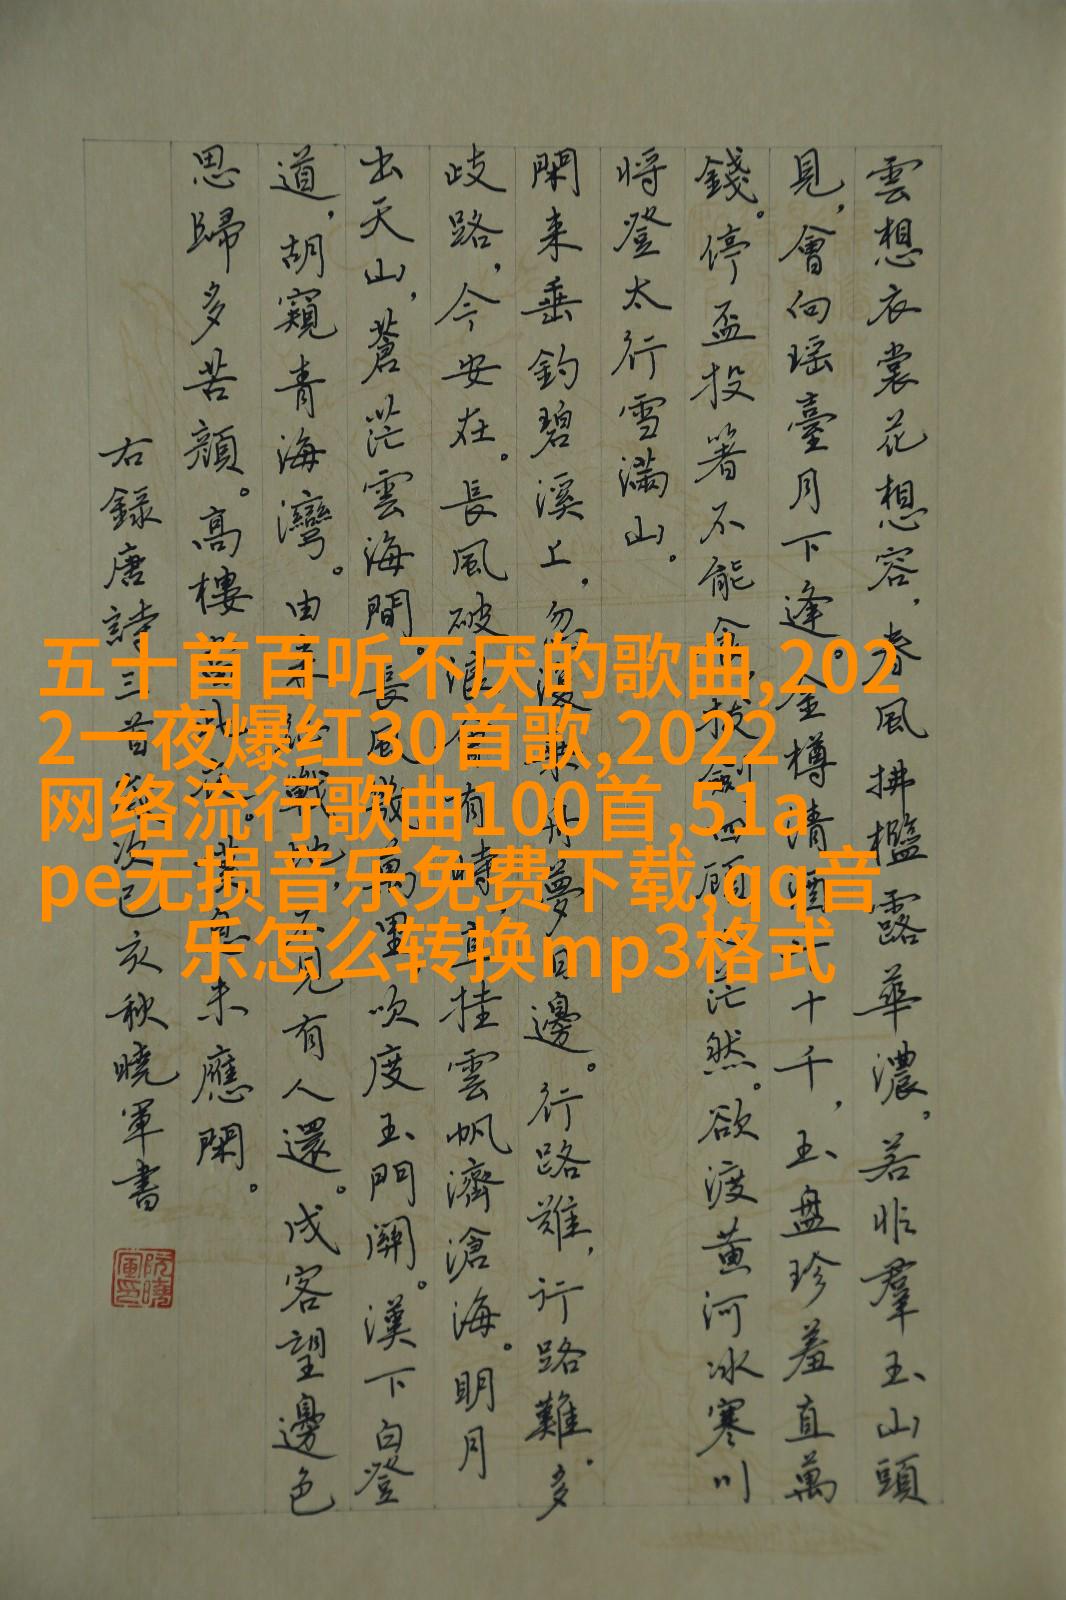 雲想衣裳花想容,春風拂檻露華濃,若非羣玉山頭
見,會向瑶臺月下逢。金樽清酒斗十千,玉盤珍羞直萬
錢。停盃投箸不能食,拔劍四顧心茫然。欲渡黄河冰寒川
将登太行雪滿山。
閑来垂釣碧溪上,忽復乘舟夢日邊。行路難,行路難。多
歧路,今安在。長風破浪會有時,直挂雲帆濟滄海。明月
出天山,蒼茫雲海間。長風幾萬里,吹度玉門關。漢下白登
道,胡窺青海灣。由来征戰地,不見有人還。戍客望邊色
思歸多苦顔。高樓當此夜,歎息未應閑。
右録唐詩三首歲次己亥秋曉軍書
阮曉軍印
五十首百听不厌的歌曲,202
2一夜爆红30首歌,2022
网络流行歌曲100首,51a
pe无损音乐免费下载,qq音
乐怎么转换mp3格式